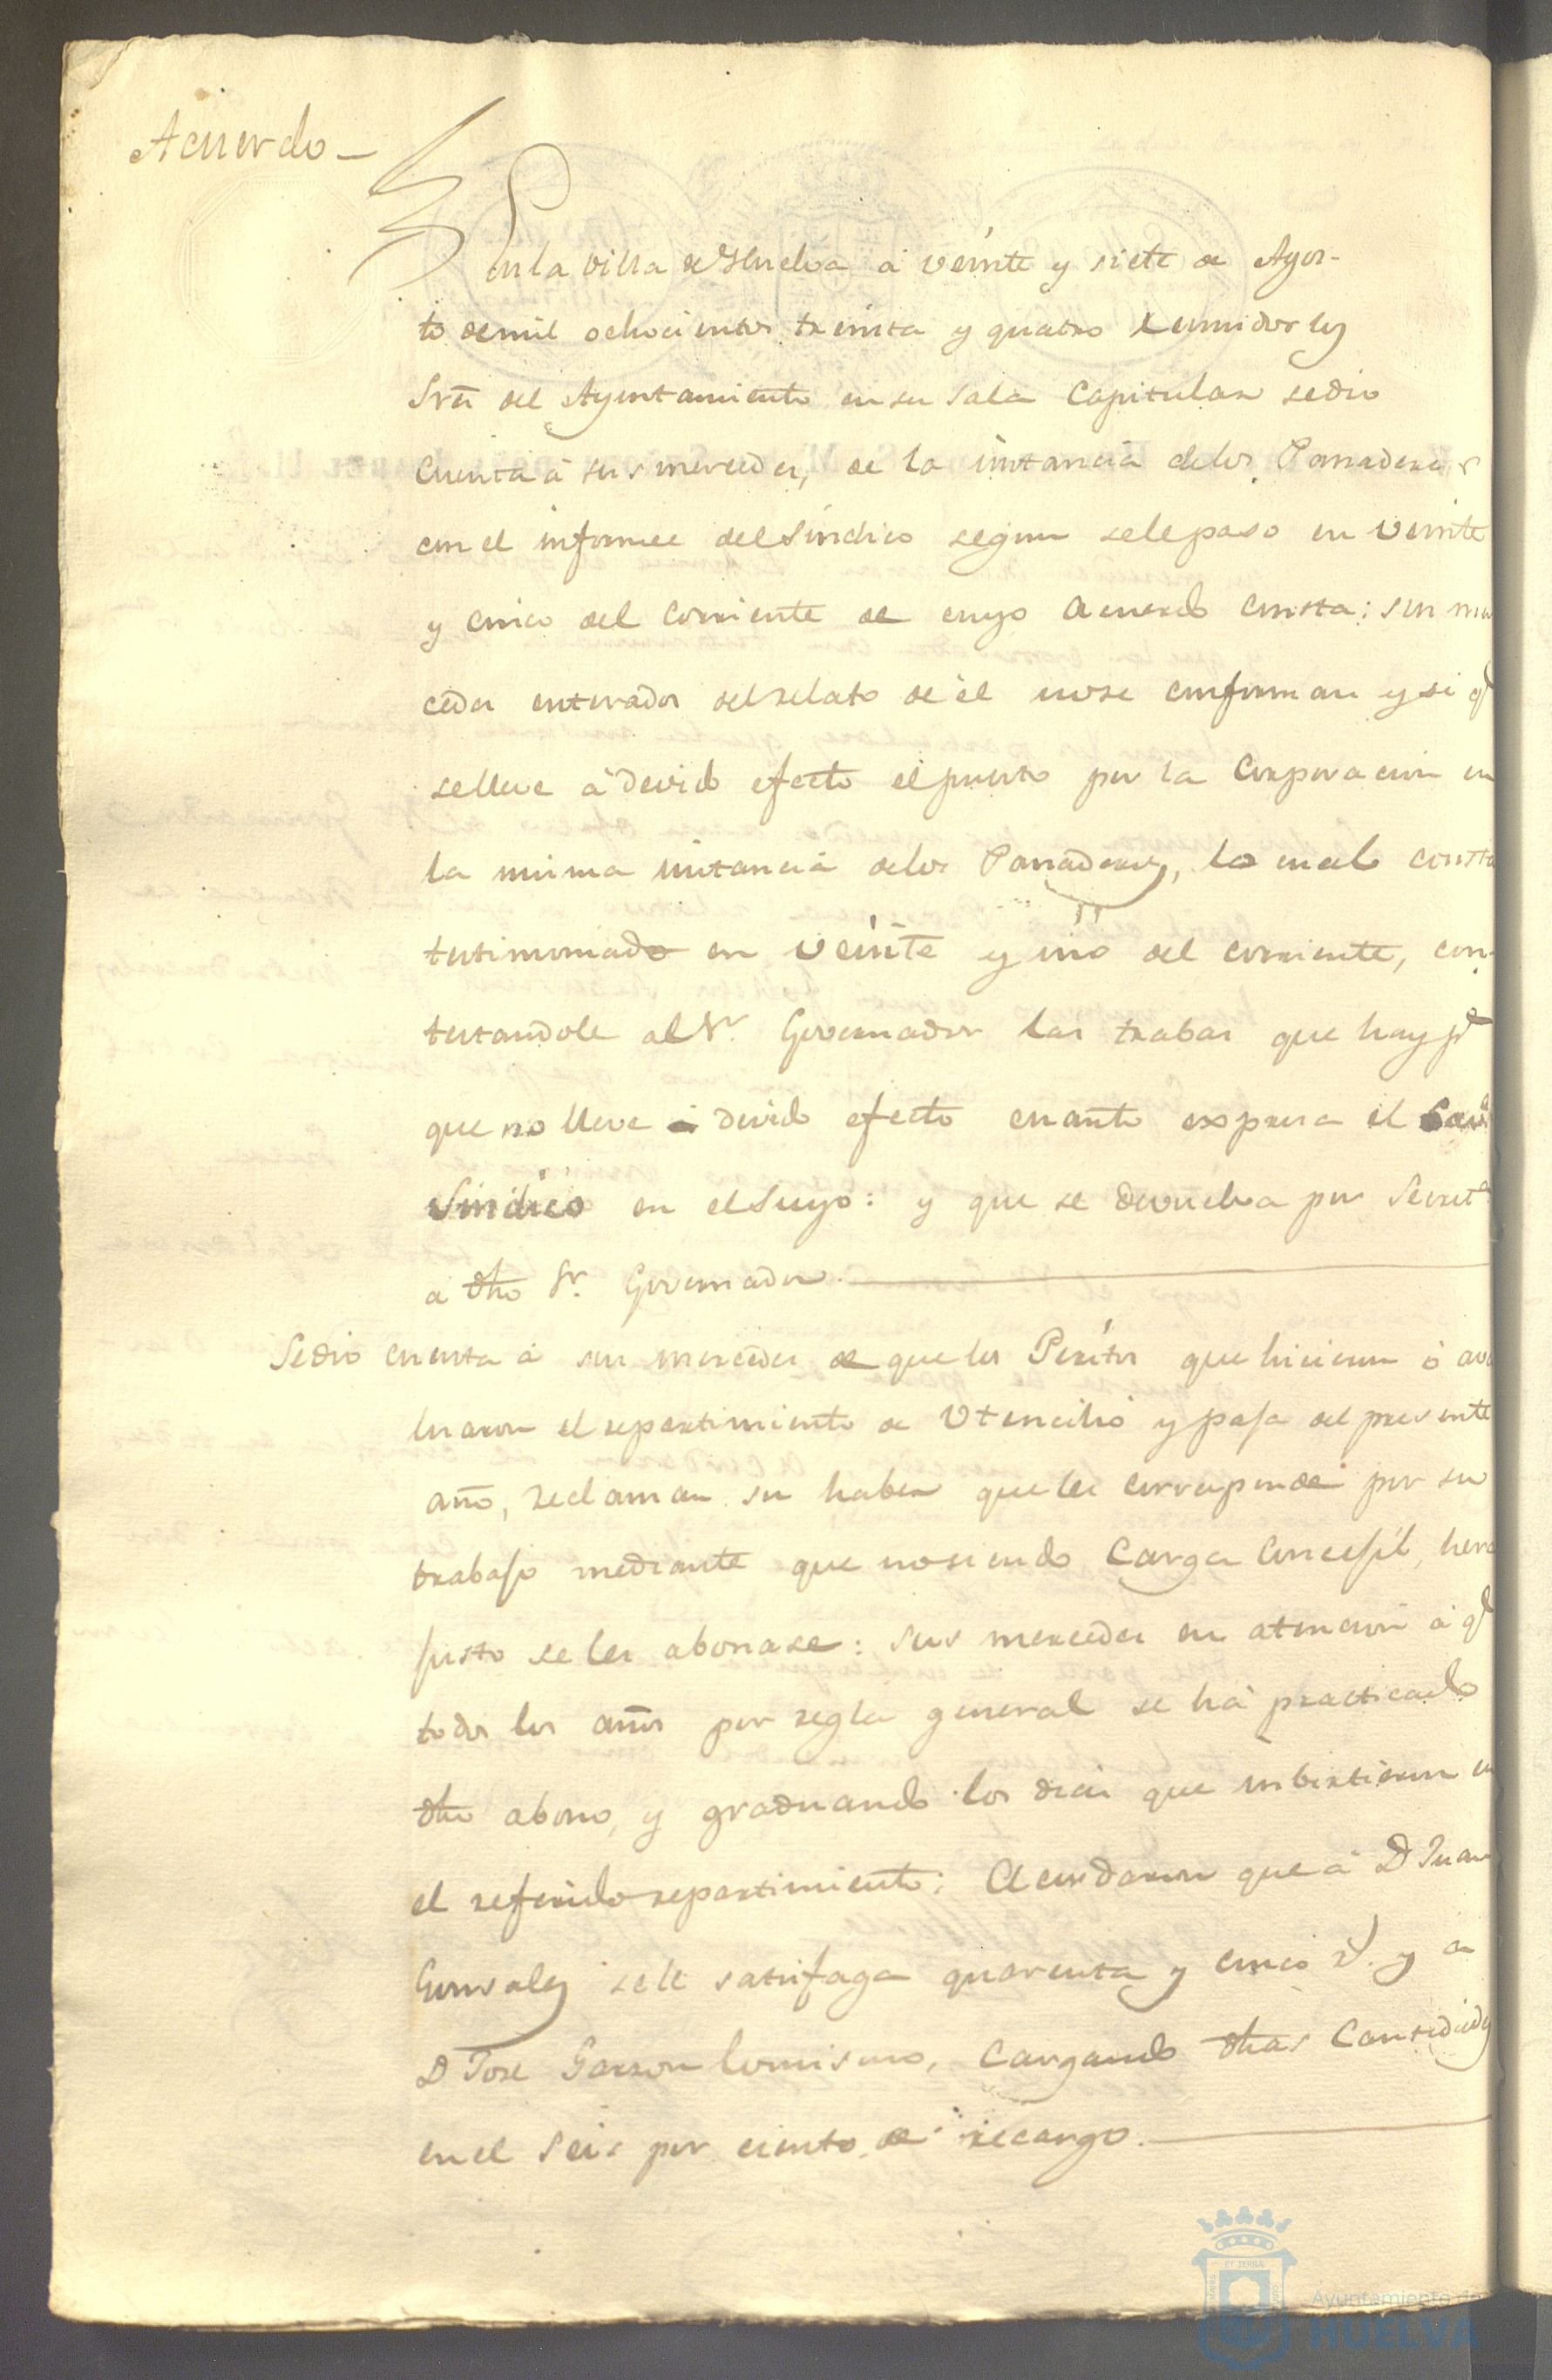 Acuerdo
En la villa de Huelva á veinte y siete de Agos-
to de mil ochocientos treinta y quatro reunidos los
Srs. del Ayuntamiento en su sala Capitular se dio
Cuenta á sus mercedes, de la instancia de los Panaderos
con el informe del Síndico segun se le paso en veinte
y cinco del corriente de cuyo Acuerdo consta: sus mer
cedes enterados del relato de él no se conforman y si qe
se lleve á devido efecto el puesto por la Corporacion en
la misma instancia de los Panaderos, lo cual consta
testimoniado en veinte y uno del corriente, con-
testandole al Sr. Governador las trabas que hay pa
que no lleve á devido efecto cuanto expresa el
Sindico en el suyo: y que se devuelva por Secreta
a dho Sr. Governador.
Se dio cuenta á sus mercedes de que los Peritos que hicieron ó ava
luaron el repartimiento de Utencilio y paja del presente
año, reclaman su haber que les corresponde por su
trabajo mediante que no siendo Carga Concejil, hera
justo se les abonase: sus mercedes en atencion á qe
todos los años por regla general se há practicado
dho abono, y graduando los dias que imbirtieron en
el referido repartimiento: Acordaron que á D Juan
Gonsales se le satisfaga quarenta y cinco rs. y a
D Jose Garzon lo mismo, Cargando dhas Cantidades
en el seis por ciento de recargo.
Ayuntamiento de
HUELVA